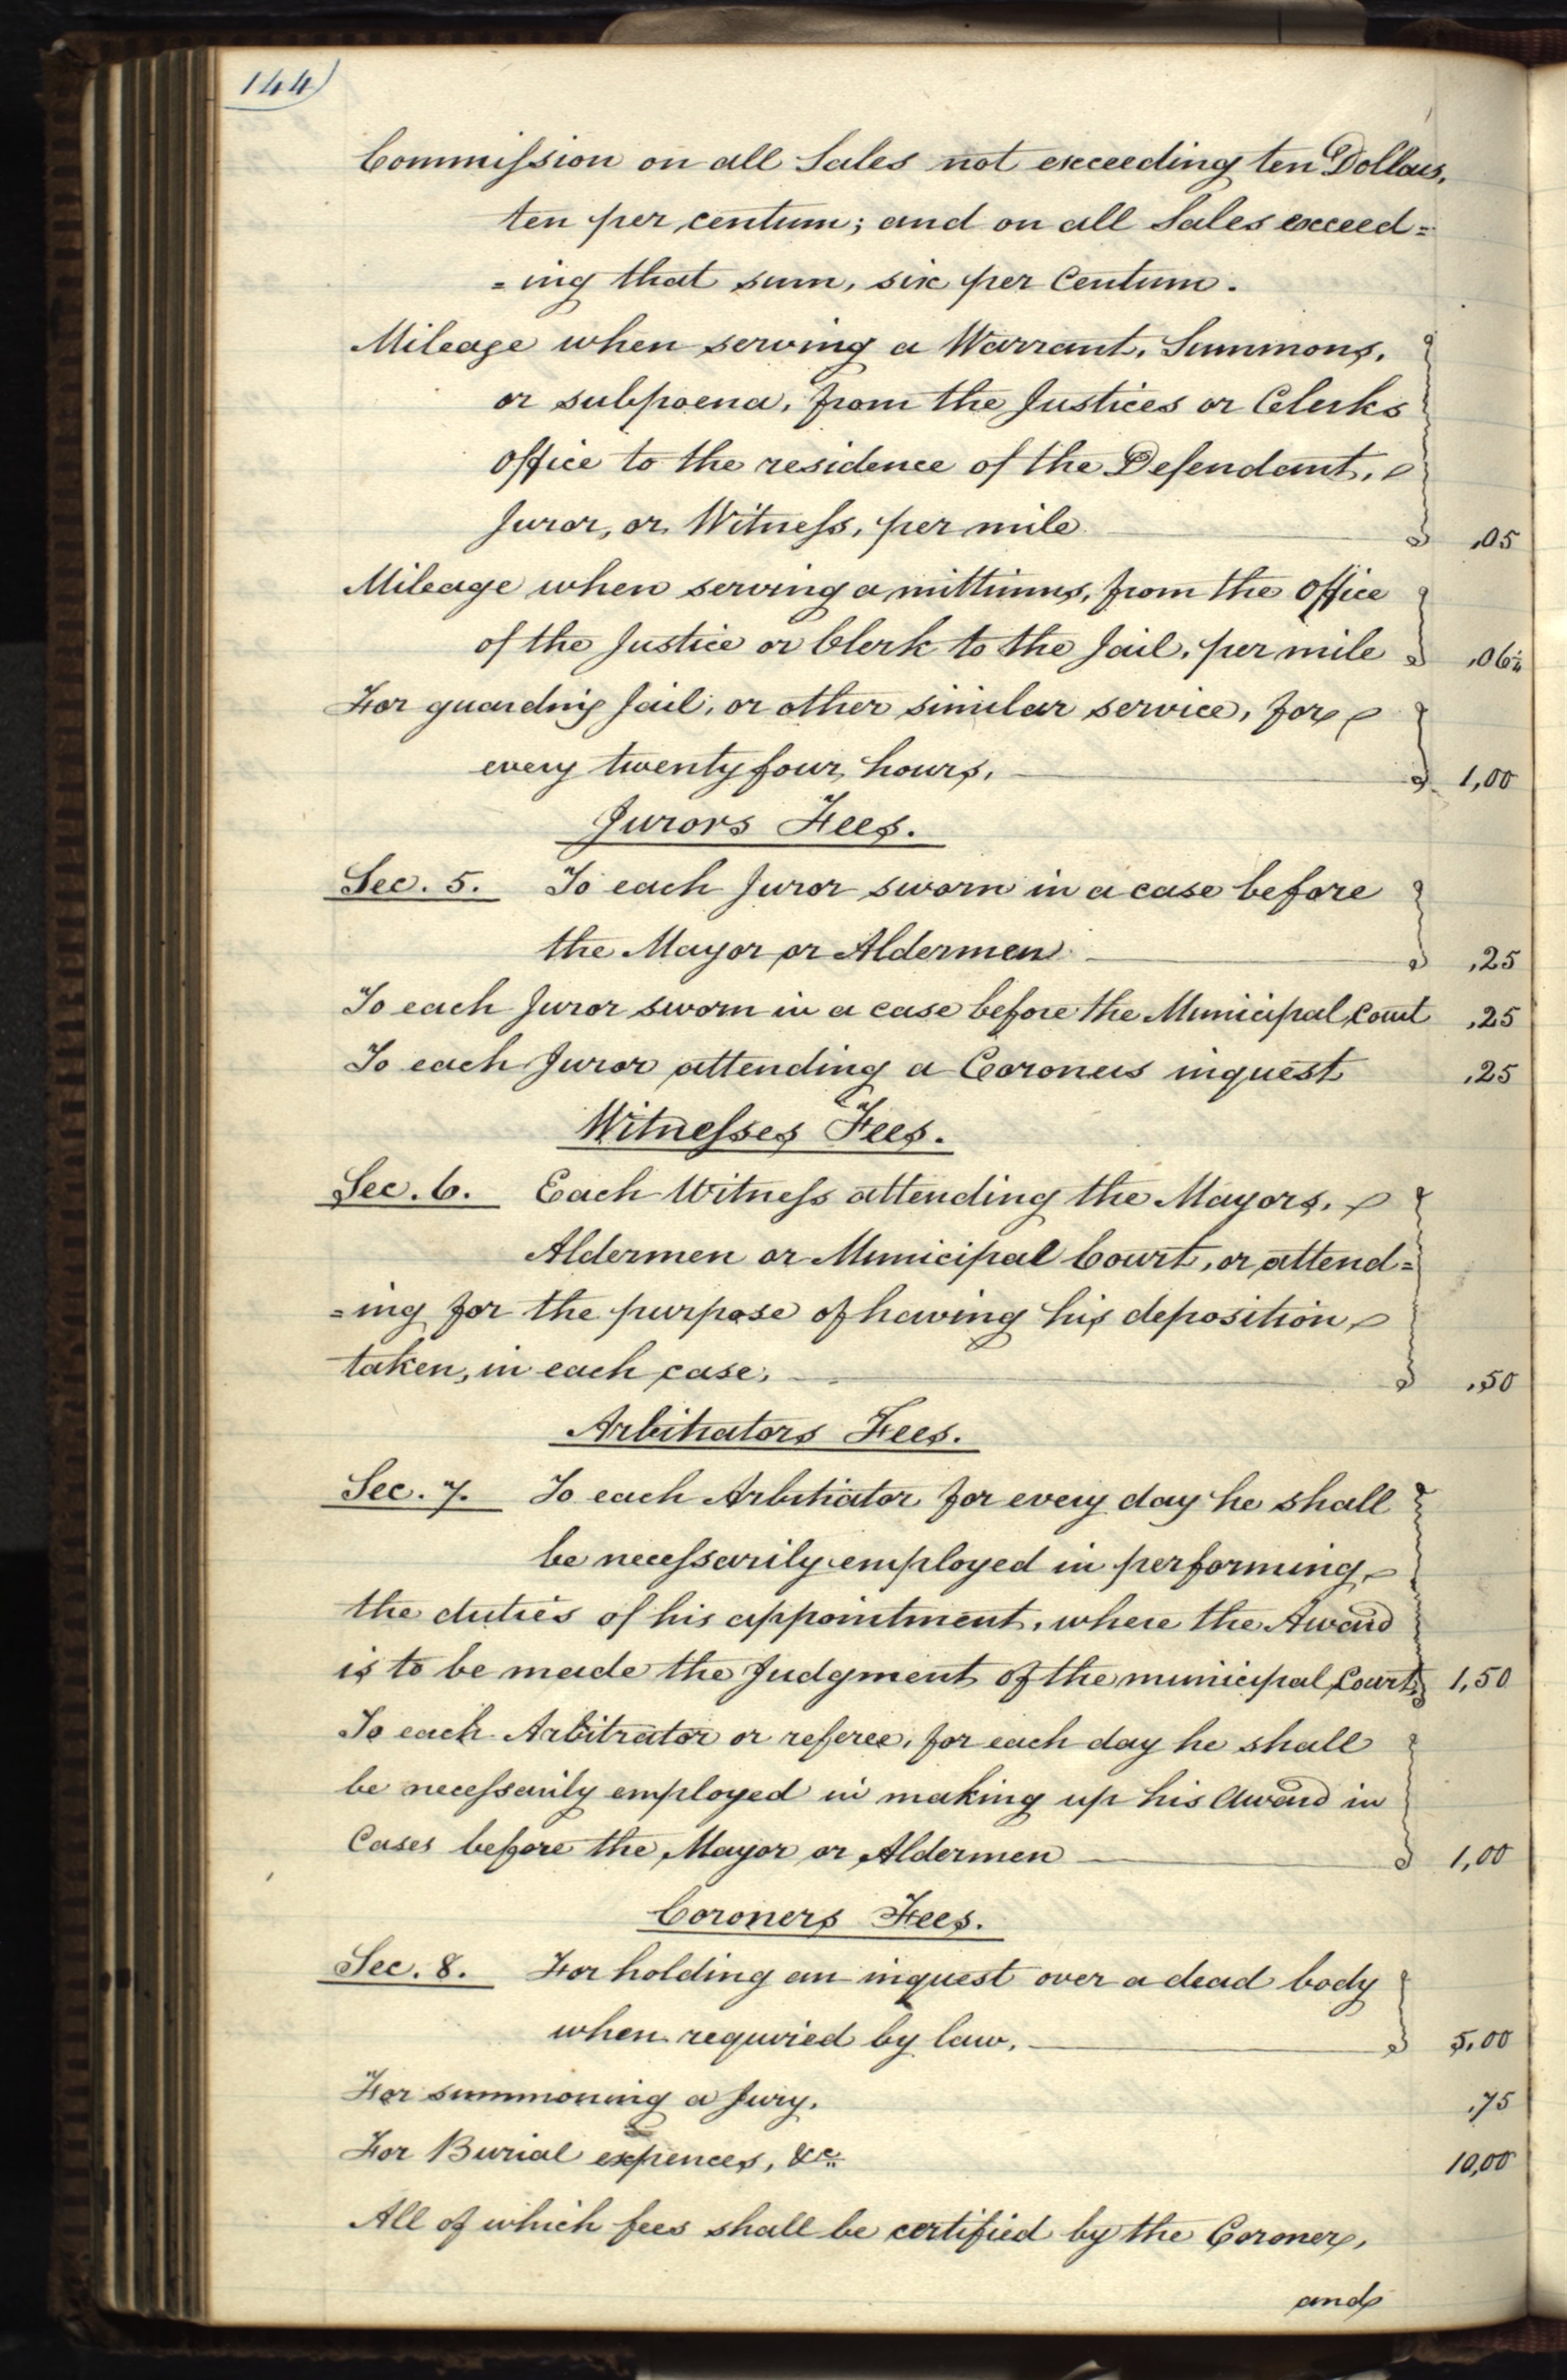 144
Commission on all Sales not exceeding ten Dollars,
ten per centum; and on all Sales exceed=
=ing that sum, six per Centum.
Mileage when serving a Warrant, Summons,
or subpoena, from the Justices or Clerks
Office to the residence of the Defendant,
Juror, or Witness, per mile ,05
Mileage when serving a mittimus, from the Office
of the Justice or Clerk to the Jail, per mile ,06¼
For guarding Jail, or other similar service, for
every twenty four hours, 1,00
Jurors Fees.
Sec. 5. To each Juror sworn in a case before
the Mayor or Aldermen ,25
To each Juror sworn in a case before the Municipal Court ,25
To each Juror attending a Coroners inquest ,25
Witnesses Fees.
Sec. 6. Each Witness attending the Mayors,
Aldermen or Municipal Court, or attend=
=ing for the purpose of having his deposition
taken, in each case, ,50
Arbitrators Fees.
Sec. 7. To each Arbitrator for every day he shall
be necessarily employed in performing
the duties of his appointment, where the Award
is to be made the Judgment of the municipal Court, 1,50
To each Arbitrator or referee, for each day he shall
be necessarily employed in making up his Award in
Cases before the Mayor or Aldermen 1,00
Coroners Fees.
Sec. 8. For holding an inquest over a dead body
when requried by law, 5,00
For summoning a Jury, ,75
For Burial expences, &c. 10,00
All of which fees shall be certified by the Coroner,
and